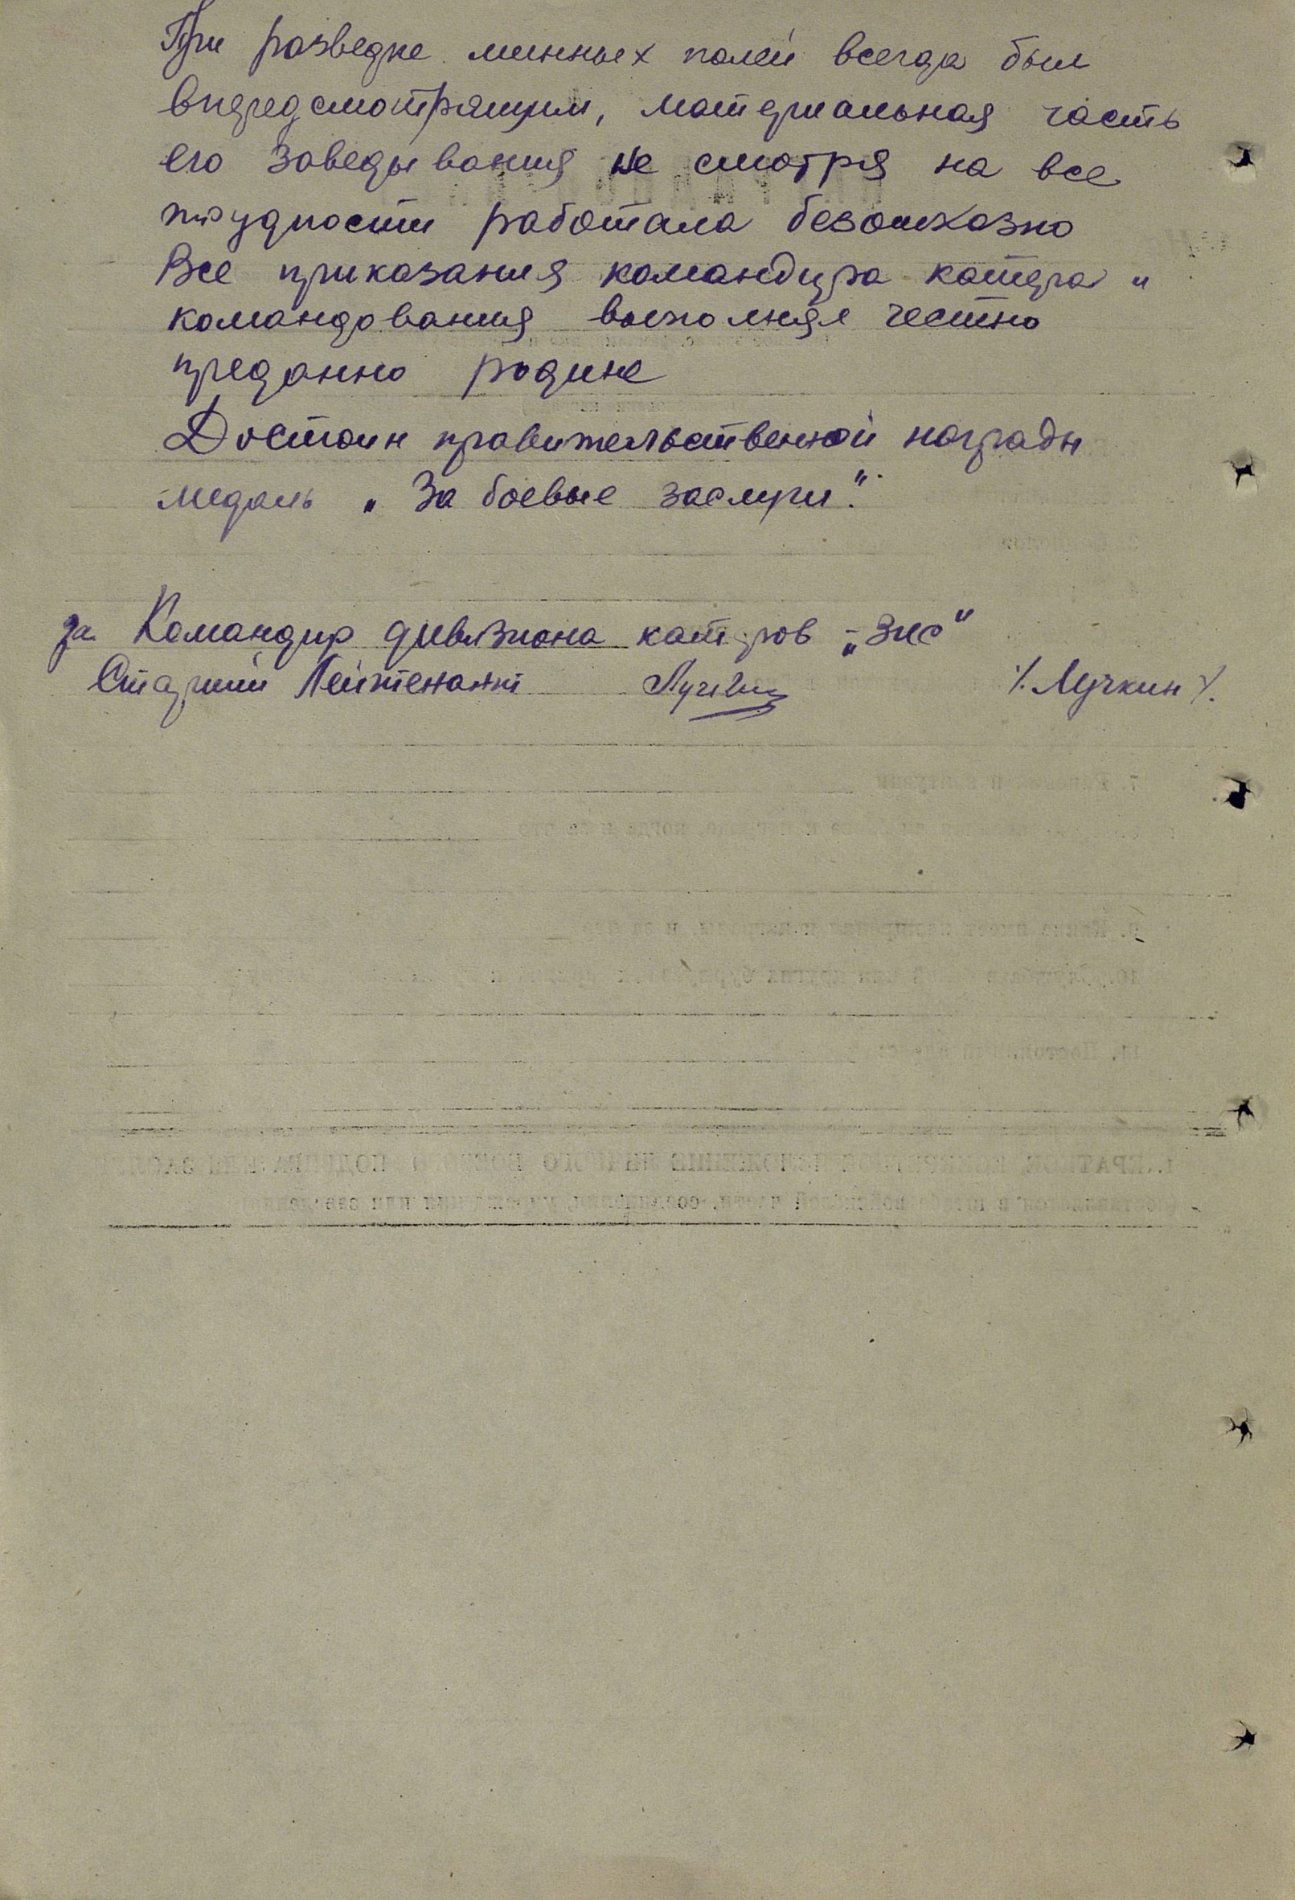 При разведке минных полей всегда был
впередсмотрящим, материальная часть
его заведывания не смотря на все
трудности работала безотказно
Все приказания командира катера и
командования выполнял честно
преданно родине
Достоин правительственной награды
медаль „За боевые заслуги“.
за Командир дивизиона катеров „ЗИС“
Старший Лейтенант /Лучкин/.